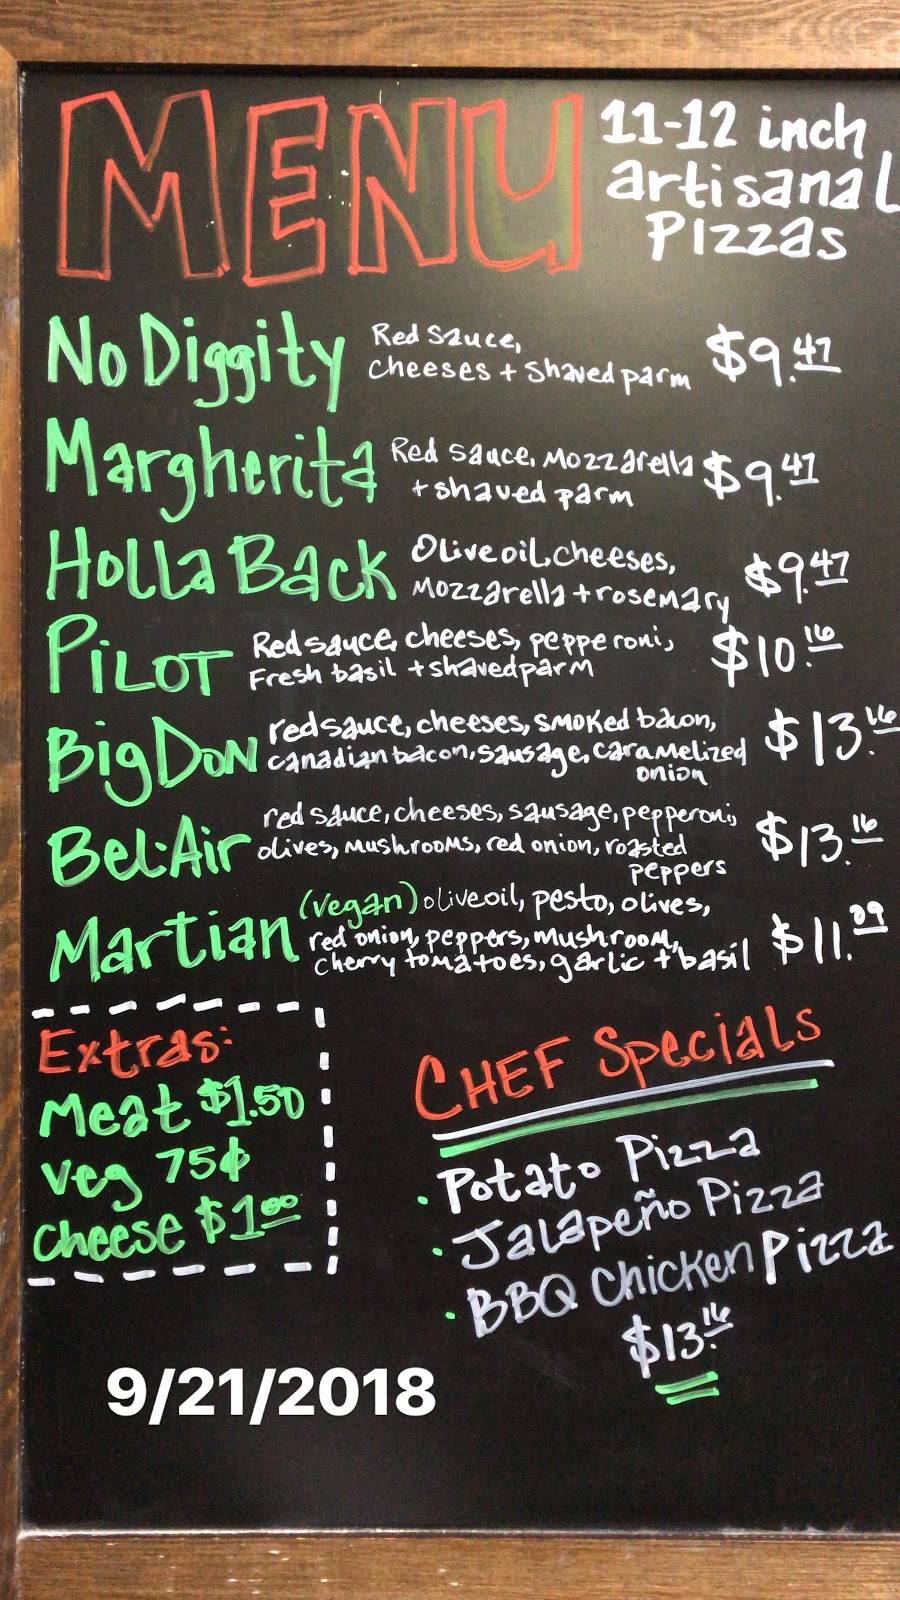 MENU
11-12 inch
artisanal
Pizzas
No Diggity
Red Sauce,
cheeses + shaved parm
$9.47
Margherita
Red sauce, Mozzarella
+ shaved parm
$9.47
Holla Back
Olive oil, cheeses,
Mozzarella + rosemary
$9.47
Pilot
Red sauce, cheeses, pepperoni,
Fresh basil + shaved parm
$10.16
Big Don
red sauce, cheeses, smoked bacon,
canadian bacon, sausage, caramelized
onion
$13.16
Bel·Air
red sauce, cheeses, sausage, pepperoni,
olives, mushrooms, red onion, roasted
peppers
$13.16
Martian
(vegan) olive oil, pesto, olives,
red onion, peppers, mushroom,
cherry tomatoes, garlic + basil
$11.09
Extras:
Meat $1.50
Veg 75¢
Cheese $1.00
CHEF Specials
· Potato Pizza
· Jalapeño Pizza
· BBQ Chicken Pizza
$13.16
9/21/2018